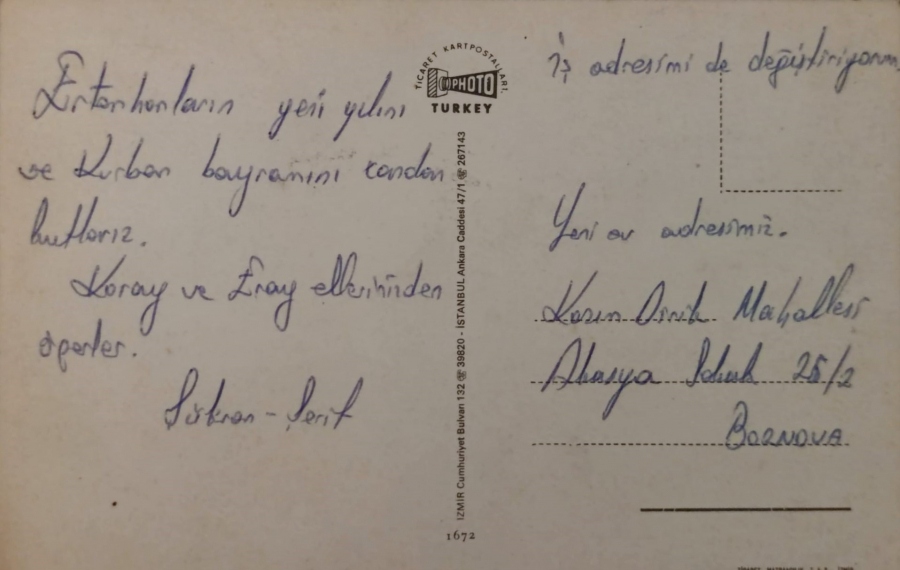 Ertanhanların yeni yılını
ve Kurban bayramını candan
kutlarız.
Koray ve Eray ellerinizden
öperler.
Şükran - Şerif
TİCARET KARTPOSTALLARI
PHOTO
TURKEY
İZMİR Cumhuriyet Bulvarı 132 ☏ 39820 - İSTANBUL Ankara Caddesi 47/1 ☏ 267143
1672
İş adresimi de değiştiriyorum
Yeni ev adresimiz.
Kazım Dirik Mahallesi
Akasya Sokak 25/2
BORNOVA